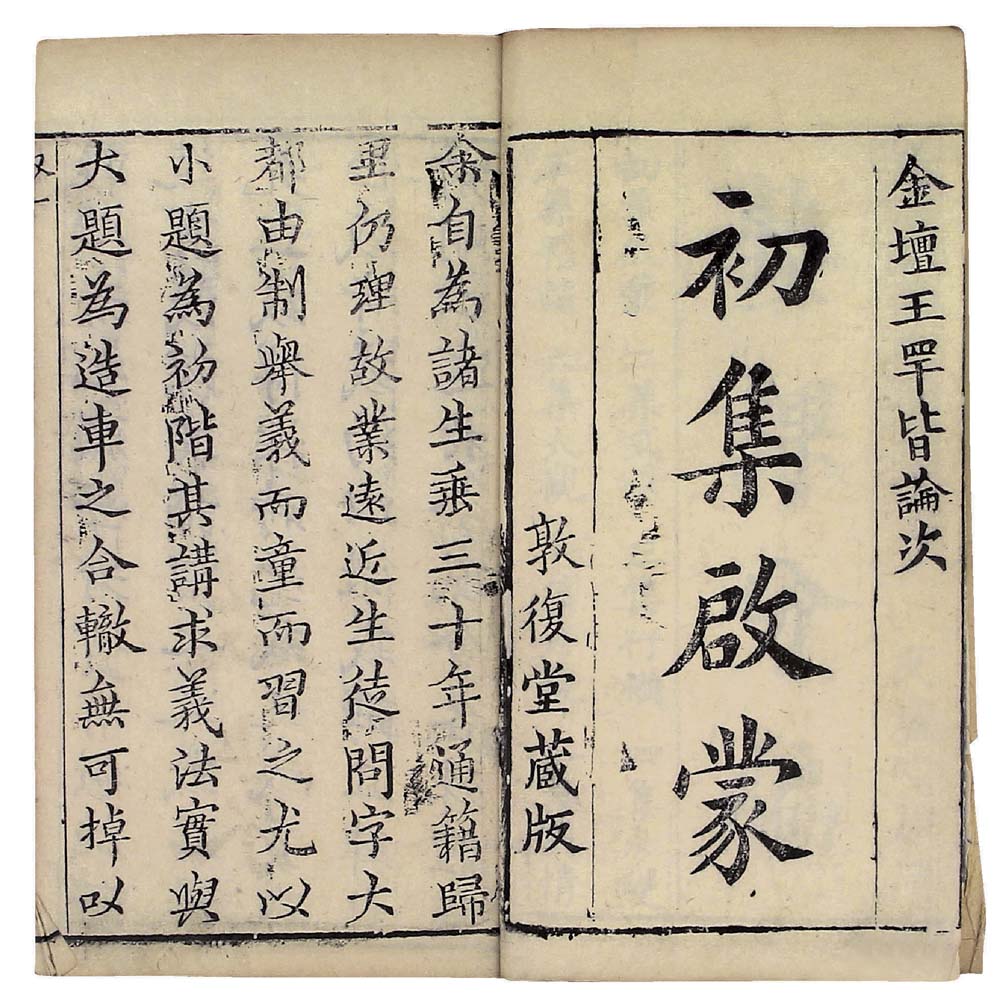 金壇王罕皆論次
初集啟蒙
敦復堂藏版
余自為諸生垂三十年通籍歸
里仍理故業遠近生徒問字大
都由制舉義而童而習之尤以
小題為初階其講求義法實與
大題為造車之合轍無可掉以